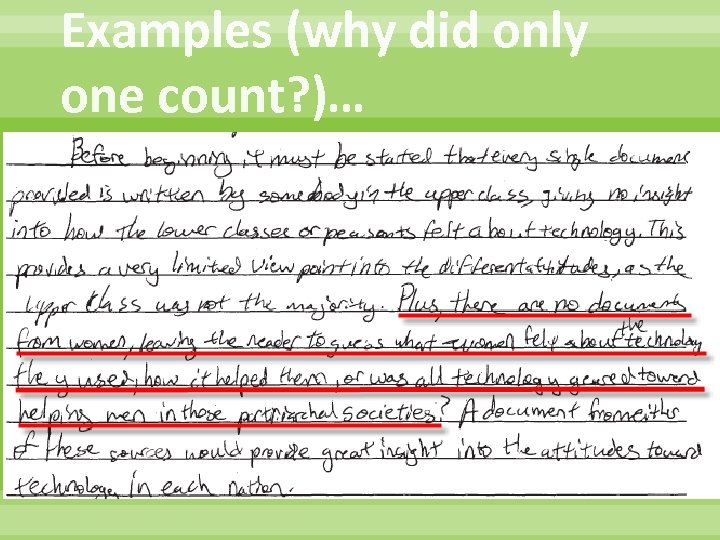 Examples (why did only
one count?)...
Before beginning, it must be stated that every single document
provided is written by somebody in the upper class, giving no insight
into how the lower classes or peasants felt about technology. This
provides a very limited view point into the different attitudes, as the
upper class was not the majority. Plus, there are no documents
from women, leaving the reader to guess what women felt about the technology
they used, how it helped them, or was all technology geared toward
helping men in these patriarchal societies? A document from either
of these sources would provide great insight into the attitudes toward
technology in each nation.